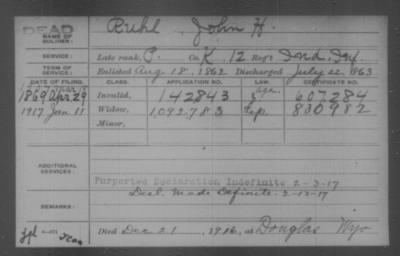 DEAD
NAME OF SOLDIER: Ruhl, John H.
SERVICE: Late rank, P. Co. K, 12 Reg't Ind. Inf.
TERM OF SERVICE: Enlisted Aug 18, 1862 Discharged July 22, 1863
DATE OF FILING. CLASS. APPLICATION NO. LAW. CERTIFICATE NO.
1869 Apr 29 Invalid, 142843 age. 607284
1917 Jan 11 Widow, 1092783 830982
Minor,
ADDITIONAL SERVICES:
Purported Declaration Indefinite 2-3-17
Decl. Made Definite 3-13-17
REMARKS:
Died Dec 21, 1916, at Douglas Wyo